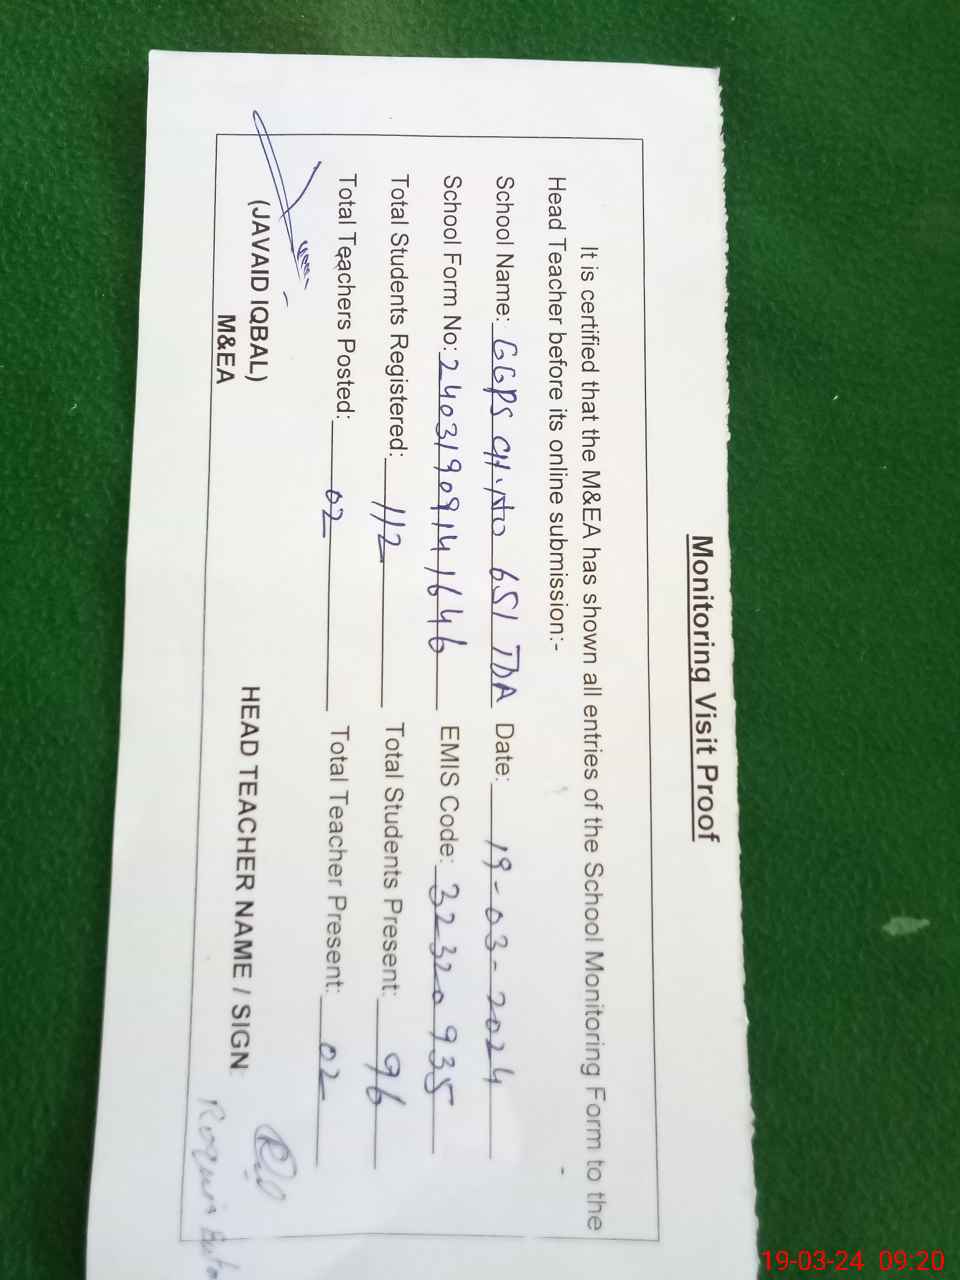 Monitoring Visit Proof
It is certified that the M&EA has shown all entries of the School Monitoring Form to the
Head Teacher before its online submission:-
School Name: GGPS CH.NO 651 TDA Date: 19-03-2024
School Form No: 24031909141646 EMIS Code: 32320935
Total Students Registered: 112 Total Students Present: 96
Total Teachers Posted: 02 Total Teacher Present: 02
(JAVAID IQBAL) HEAD TEACHER NAME / SIGN
M&EA
19-03-24 09:20